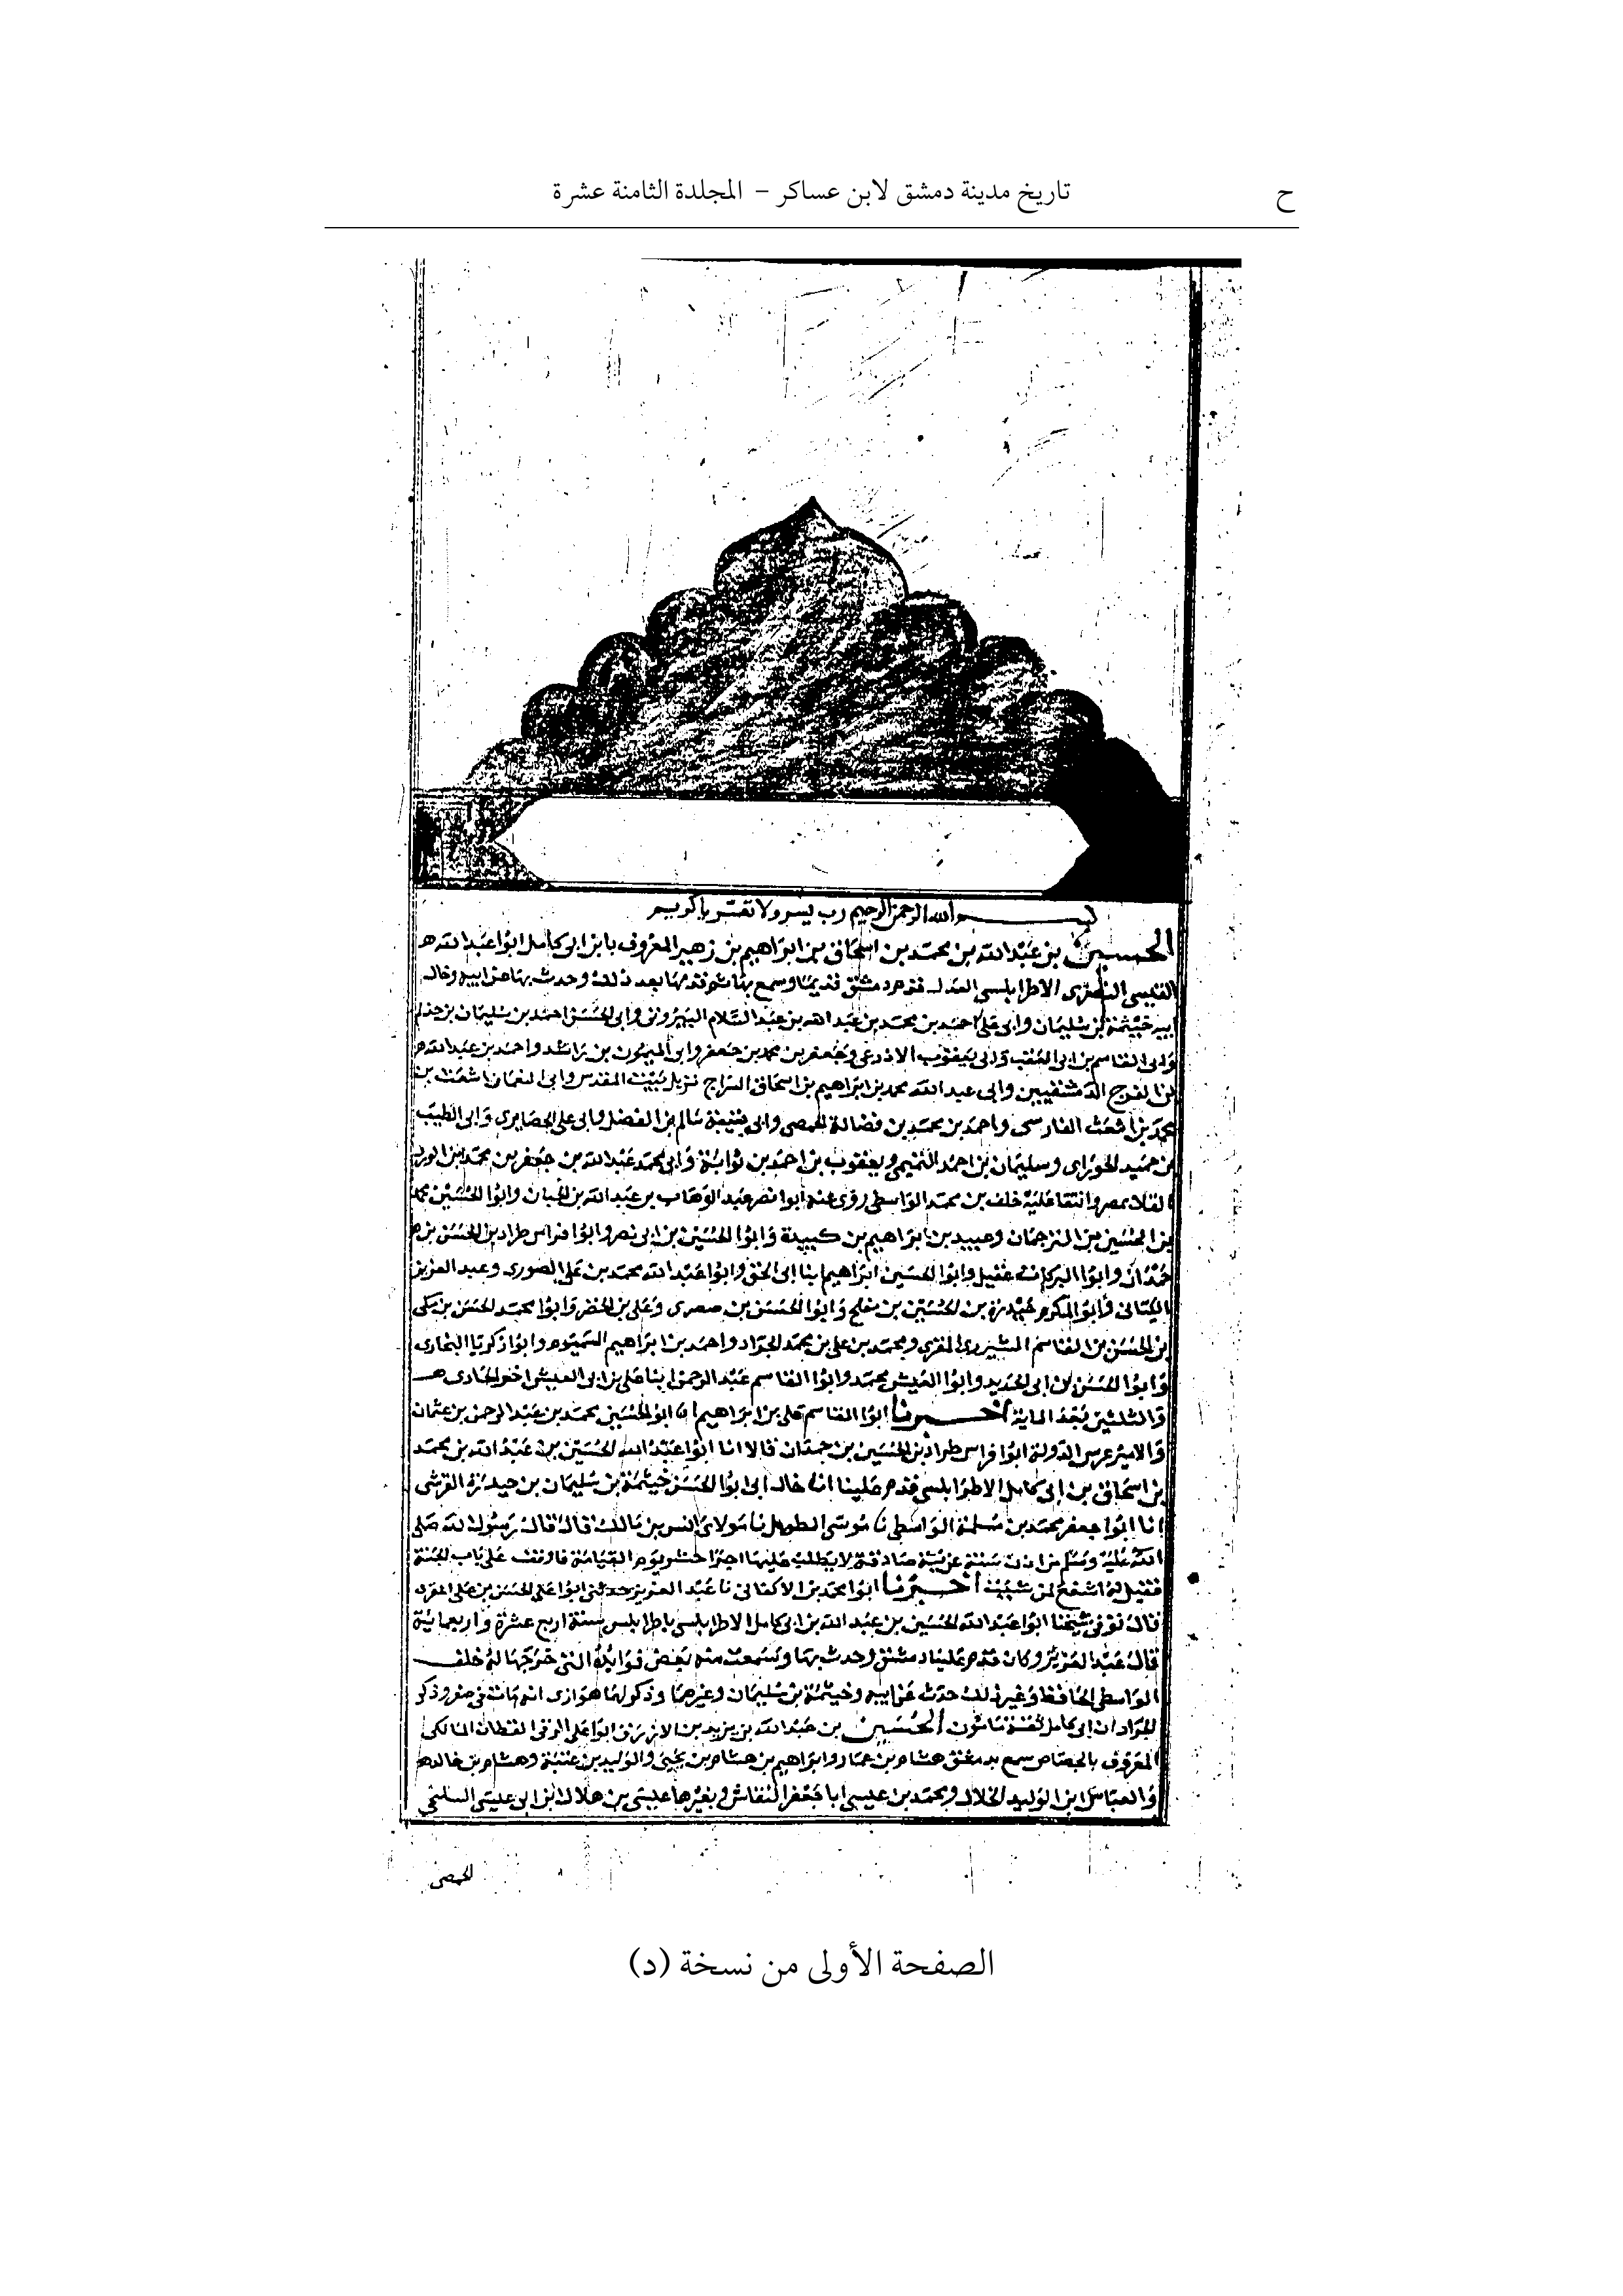 ح
تاريخ مدينة دمشق لابن عساكر – المجلدة الثامنة عشرة
بسم الله الرحمن الرحيم رب يسر ولا تعسر يا كريم
الحسين بن عبد الله بن محمد بن اسحاق بن ابراهيم بن زهير المعروف بابن ابي كامل ابوا عبد الله
القيسي الاطرابلسي العدل قدم دمشق قديما وسمع بها ثم قدمها بعد ذلك وحدث بها عن ابيه وخال
ابيه خيثمة بن سليمان وابي علي احمد بن محمد بن عبد الله بن عبد السلام البيروتي وابي الحسن احمد بن سليمان بن حذلم
وابي القاسم بن ابي العقب وابي يعقوب الاذرعي وجعفر بن محمد بن جعفر وابي الميمون بن راشد واحمد بن عبد الله
بن الفرج الدمشقيين وابي عبد الله محمد بن ابراهيم بن اسحاق السراج نزيل بيت المقدس وابي النعمان اشعث بن
محمد بن اشعث الفارسي واحمد بن محمد بن فضالة الحمصي وابي سالم بن الفضل وابي علي الحصايري وابي الطيب
بن حميد الحورابي وسليمان بن احمد ويعقوب بن احمد بن ثوابة وابي محمد عبد الله بن جعفر بن محمد بن الورد
بمصر وانتقا عليه خلف بن محمد الواسطي روى عنه ابوا نصر عبد الوهاب بن عبد الله بن الجبان وابوا الحسين محمد
بن الحسين بن الترجمان وعبيد بن ابراهيم بن كبيبة وابوا الحسين بن ابي نصر وابوا فراس طراد بن الحسين بن
حمدان وابوا البركات عقيل وابوا الحسين ابراهيم ابنا ابي الجن وابوا عبد الله محمد بن علي الصوري وعبد العزيز
الكتاني وابوا المكرم حيدرة بن الحسين بن مفلح وابوا الحسن بن صصرى وعلي بن الخضر وابوا محمد الحسن بن مكي
بن الحسن بن القاسم المقري ومحمد بن علي بن محمد الجواد واحمد بن ابراهيم وابوا زكريا البخاري
وابوا الحسن بن ابي الحديد وابوا محمد وابوا القاسم عبد الرحمن ابنا علي بن ابي اخر الحادي
والثلثين بعد المايه اخبرنا ابوا القاسم علي بن ابراهيم انا ابو الحسين محمد بن عبد الرحمن بن عثمان
والامير عرس الدولة ابوا فراس طراد بن الحسين بن حمدان قالا انا ابوا عبد الله الحسين بن عبد الله بن محمد
بن اسحاق بن ابي كامل الاطرابلسي قدم علينا انا خال ابي ابوا الحسن خيثمة بن سليمان بن حيدرة القرشي
انا ابوا جعفر محمد بن مسلمة الواسطي نا موسى الطويل نا مولاي انس بن مالك قال قال رسول الله صلى
الله عليه وسلم من اذن سنة صادقة لا يطلب عليها اجرا حشر يوم القيامة فاوقف على باب الجنة
فقيل له اشفع لمن شيت اخبرنا ابوا محمد بن الاكفاني نا عبد العزيز حدثني ابوا علي الحسن بن علي المقري
قال توفي شيخنا ابوا عبد الله الحسين بن عبد الله بن ابي كامل الاطرابلسي باطرابلس سنة اربع عشرة واربعمائية
قال عبد العزيز وكان قدم علينا دمشق وحدث بها وسمعت منه بعض فوايده التي خرجها له خلف
الواسطي الحافظ وغير ذلك حدث عن ابيه وخيثمة بن سليمان وغيرهما وذكر لنا هوازى انه مات في صفر وذكر
الجواد ان ابي كامل ثقة مامون الحسين بن عبد الله بن يزيد بن الازرق ابوا علي الرقي القطان المالكي
المعروف بالجصاص سمع بدمشق هشام بن عمار وابراهيم بن هشام بن يحيى والوليد بن عتبة وهشام بن خالد
والعباس ابن الوليد الخلال ومحمد بن عيسى ابا جعفر النقاش وبغيرها عيسى بن هلال ابن ابي عيسى السليحي
الحمصي
الصفحة الأولى من نسخة (د)